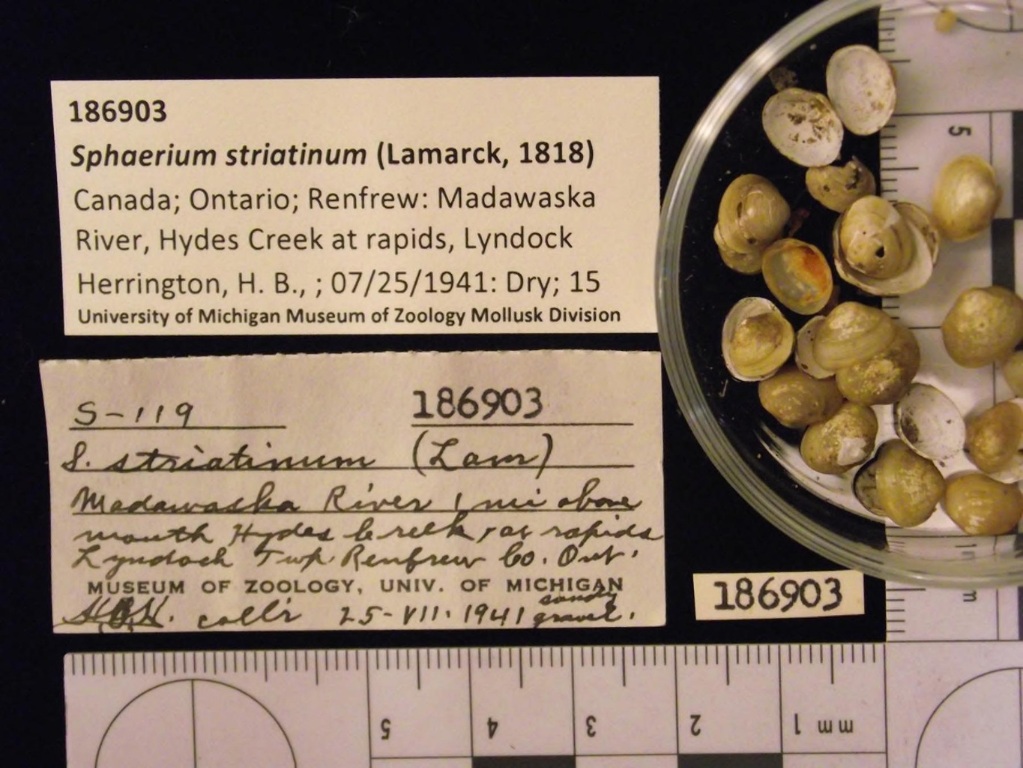 186903
Sphaerium striatinum (Lamarck, 1818)
Canada; Ontario; Renfrew: Madawaska
River, Hydes Creek at rapids, Lyndock
Herrington, H. B., ; 07/25/1941: Dry; 15
University of Michigan Museum of Zoology Mollusk Division
S-119 186903
S. striatinum (Lam)
Madawaska River 1 mi above
mouth Hydes Creek, at rapids
Lyndoch Twp Renfrew Co. Ont.
MUSEUM OF ZOOLOGY, UNIV. OF MICHIGAN
H.B.H. coll'r 25-VII-1941 sandy
gravel.
186903
5 4 3 2 1 mm
5
m